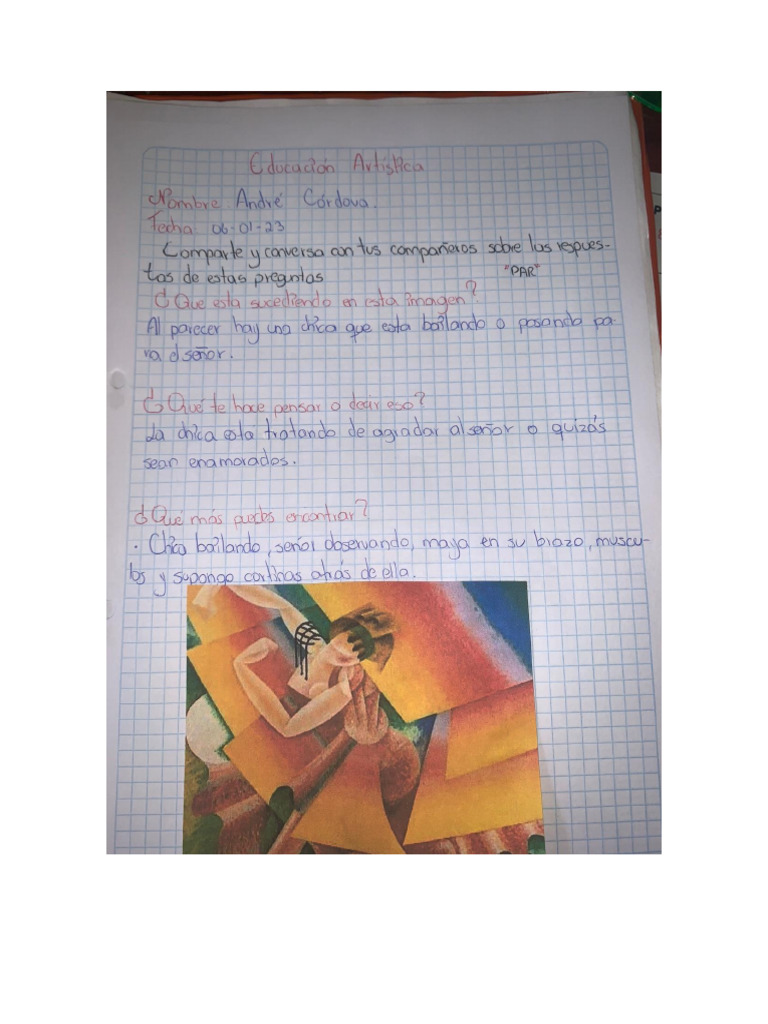 Educación Artística
Nombre: André Córdova.
Fecha: 06-01-23
Comparte y conversa con tus compañeros sobre las respues-
tas de estas preguntas "PAR"
¿Que esta sucediendo en esta imagen?
Al parecer hay una chica que esta bailando o posando pa-
ra el señor.
¿Qué te hace pensar o decir eso?
La chica está tratando de agradar al señor o quizás
sean enamorados.
¿Qué más puedes encontrar?
· Chica bailando, señor observando, maya en su brazo, muscu-
los y supongo cortinas atrás de ella.